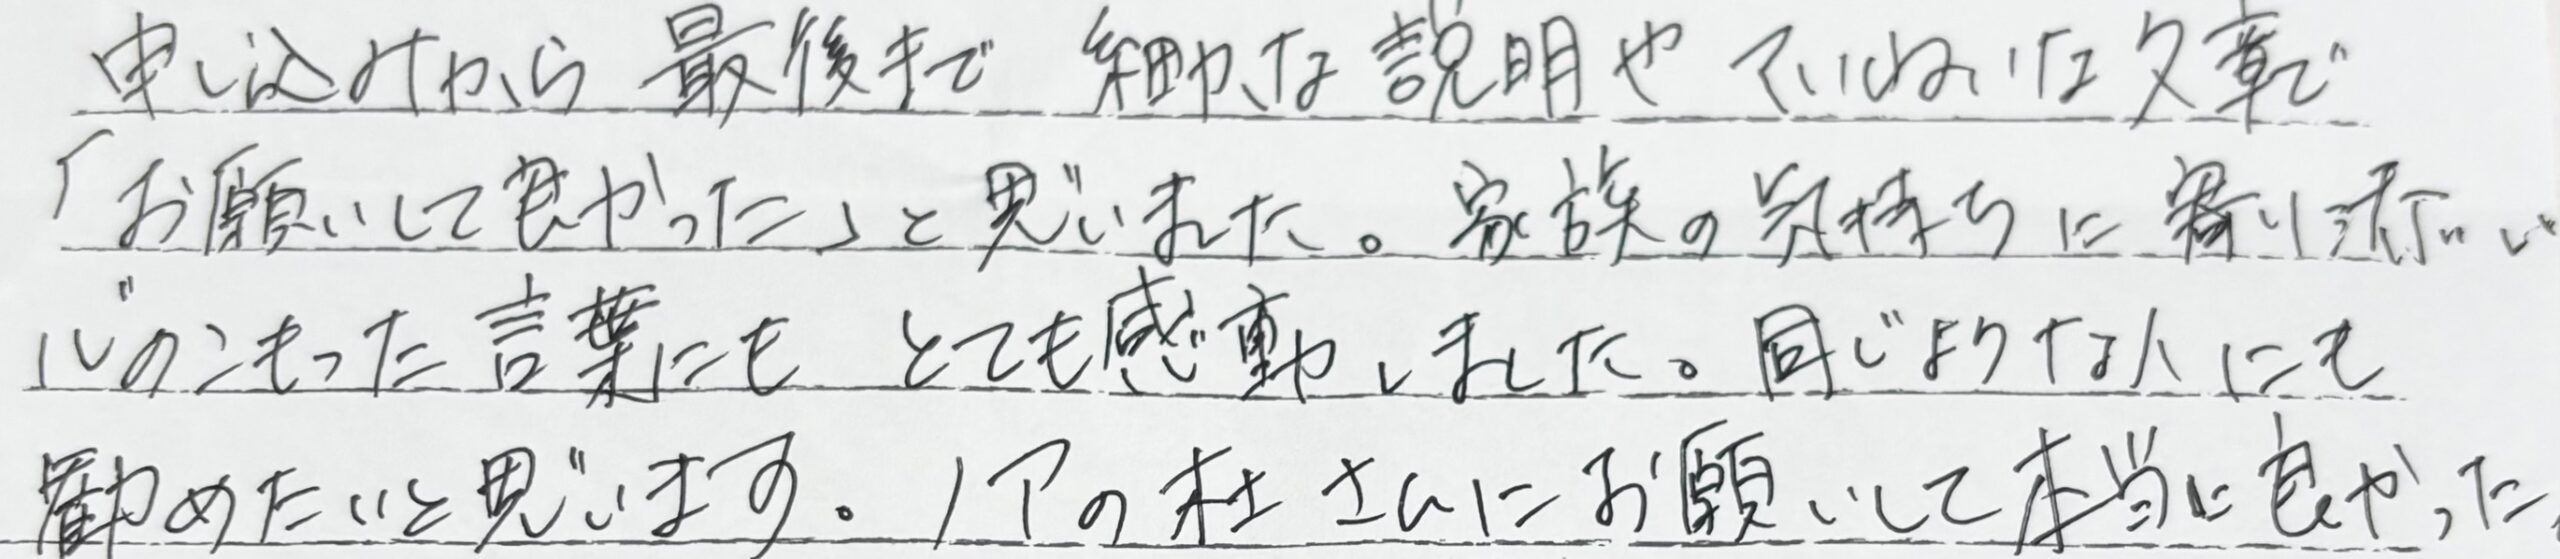 申し込みから最後まで 細かな説明や ていねいな文章で
「お願いして良かった」と思いました。家族の気持ちに寄り添い
心のこもった言葉にも とても感動しました。同じような人にも
勧めたいと思います。ノアの杜さんにお願いして本当に良かった